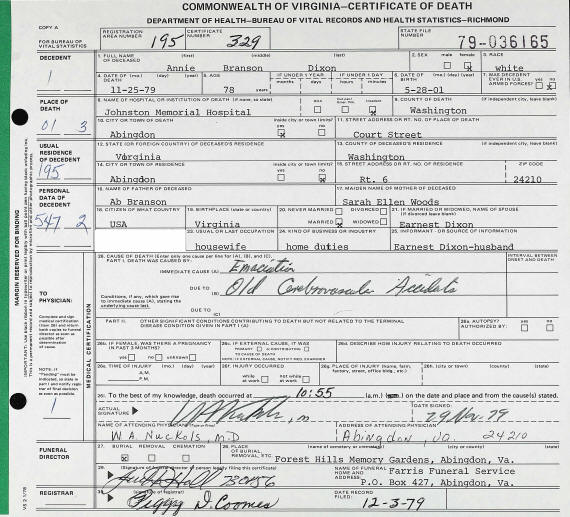 COMMONWEALTH OF VIRGINIA—CERTIFICATE OF DEATH
DEPARTMENT OF HEALTH—BUREAU OF VITAL RECORDS AND HEALTH STATISTICS—RICHMOND
COPY A
FOR BUREAU OF VITAL STATISTICS
REGISTRATION AREA NUMBER 195 CERTIFICATE NUMBER 329 STATE FILE NUMBER 79-036165
DECEDENT
1. FULL NAME OF DECEASED (first) (middle) (last) 2. SEX male female 3. RACE
Annie Branson Dixon x white
4. DATE OF DEATH (mo.) (day) (year) 5. AGE IF UNDER 1 YEAR IF UNDER 1 DAY 6. DATE OF BIRTH (mo.) (day) (year) 7. WAS DECEDENT EVER IN U.S. ARMED FORCES? yes no
months days hours minutes
11-25-79 78 years 5-28-01 x
PLACE OF DEATH
01 3
8. NAME OF HOSPITAL OR INSTITUTION OF DEATH (if none, so state) 9. COUNTY OF DEATH (if independent city, leave blank)
Johnston Memorial Hospital x Washington
10. CITY OR TOWN OF DEATH inside city or town limits? yes no 11. STREET ADDRESS OR RT. NO. OF PLACE OF DEATH
Abingdon x Court Street
USUAL RESIDENCE OF DECEDENT
195
12. STATE (OR FOREIGN COUNTRY) OF DECEASED'S RESIDENCE 13. COUNTY OF DECEASED'S RESIDENCE (if independent city, leave blank)
Virginia Washington
14. CITY OR TOWN OF RESIDENCE inside city or town limits? yes no 15. STREET ADDRESS OR RT. NO. OF RESIDENCE ZIP CODE
Abingdon x Rt. 6 24210
PERSONAL DATA OF DECEDENT
547 2
16. NAME OF FATHER OF DECEASED 17. MAIDEN NAME OF MOTHER OF DECEASED
Ab Branson Sarah Ellen Woods
18. CITIZEN OF WHAT COUNTRY 19. BIRTHPLACE (state or country) 20. NEVER MARRIED DIVORCED 21. IF MARRIED OR WIDOWED, NAME OF SPOUSE (if divorced leave blank)
USA Virginia MARRIED x WIDOWED Earnest Dixon
23. USUAL OR LAST OCCUPATION 24. KIND OF BUSINESS OR INDUSTRY 25. INFORMANT - OR SOURCE OF INFORMATION
housewife home duties Earnest Dixon-husband
MARGIN RESERVED FOR BINDING
TO PHYSICIAN:
MEDICAL CERTIFICATION
26. CAUSE OF DEATH (Enter only one cause per line for (A), (B), and (C). INTERVAL BETWEEN ONSET AND DEATH
PART I. DEATH WAS CAUSED BY:
IMMEDIATE CAUSE (A) Emaciation
DUE TO (B) Old Cerebrovascular Accidents
Conditions, if any, which gave rise to immediate cause (A), stating the underlying cause last.
DUE TO (C)
PART II. OTHER SIGNIFICANT CONDITIONS CONTRIBUTING TO DEATH BUT NOT RELATED TO THE TERMINAL DISEASE CONDITION GIVEN IN PART I (A)
26a. AUTOPSY? yes no
AUTHORIZED BY:
26b. IF FEMALE, WAS THERE A PREGNANCY IN PAST 3 MONTHS? yes no unknown
26c. IF EXTERNAL CAUSE, IT WAS PRIMARY OR CONTRIBUTING TO CAUSE OF DEATH
26d. DESCRIBE HOW INJURY RELATING TO DEATH OCCURRED
26e. TIME OF INJURY (mo.) (day) (year) A.M. P.M.
26f. INJURY OCCURRED while at work not while at work
26g. PLACE OF INJURY (home, farm, factory, street, office bldg., etc.) 26h. (city or town) (county) (state)
To the best of my knowledge, death occurred at 10:55 (a.m.) on the date and place and from the cause(s) stated.
ACTUAL SIGNATURE DATE SIGNED: 29 Nov. 79
NAME OF ATTENDING PHYSICIAN ADDRESS OF ATTENDING PHYSICIAN
W.A. Nuckols, M.D. Abingdon, Va. 24210
FUNERAL DIRECTOR
27. BURIAL REMOVAL CREMATION 28. PLACE OF BURIAL, REMOVAL, ETC. (name of cemetery or crematory) (city or county) (state)
x Forest Hills Memory Gardens, Abingdon, Va.
NAME OF FUNERAL HOME AND ADDRESS Farris Funeral Service
P.O. Box 427, Abingdon, Va.
REGISTRAR
30. (signature of registrar) Peggy D. Coomes DATE RECORD FILED: 12-3-79
VS 2 1/78